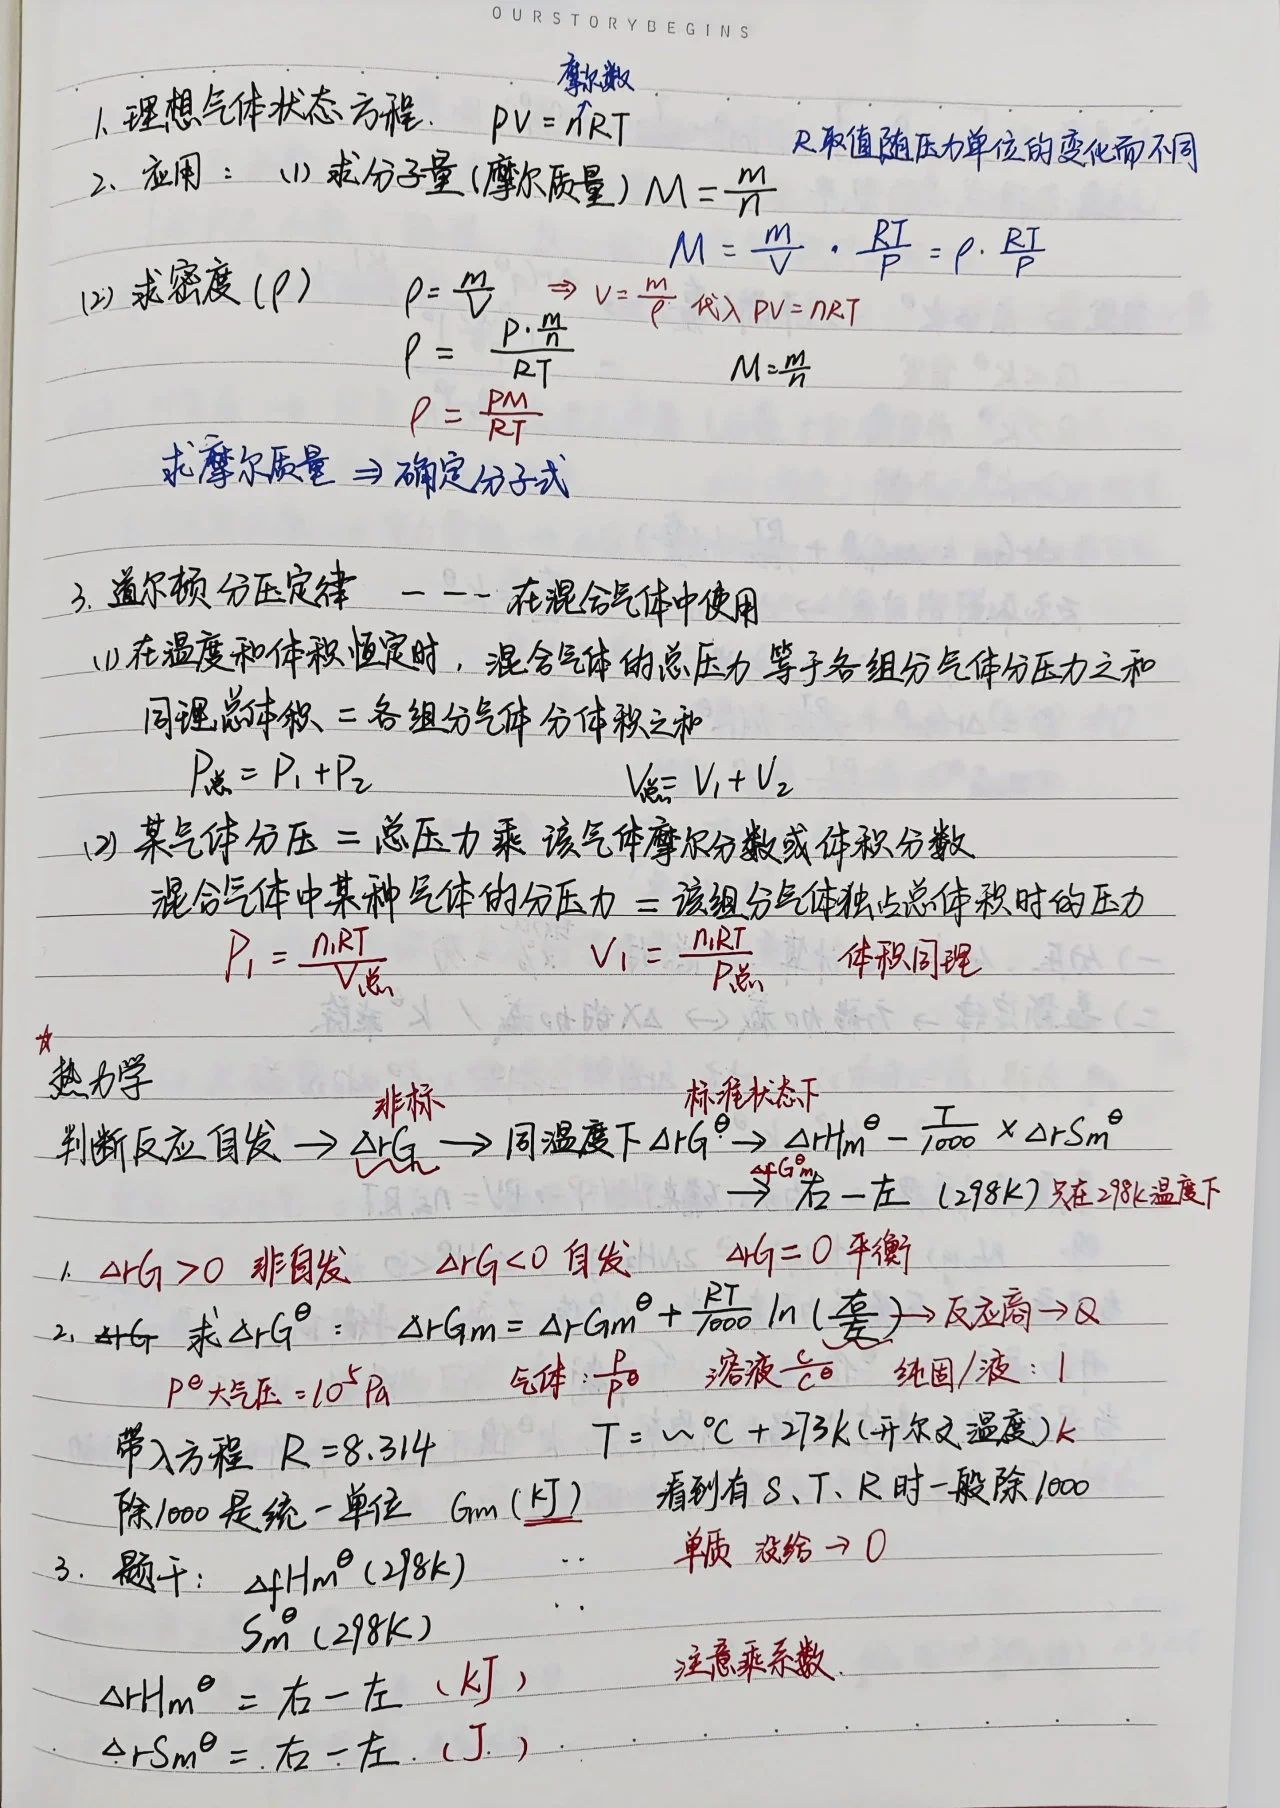 OURSTORYBEGINS
摩尔数
1. 理想气体状态方程. PV = nRT
R取值随压力单位的变化而不同
2、应用： (1) 求分子量(摩尔质量) M = m/n
M = m/V · RT/P = ρ · RT/P
(2) 求密度(ρ) ρ = m/V ⇒ V = m/ρ 代入 PV = nRT
ρ = P·m/n / RT M = m/n
ρ = PM/RT
求摩尔质量 ⇒ 确定分子式
3. 道尔顿分压定律 --- 在混合气体中使用
(1) 在温度和体积恒定时，混合气体的总压力等于各组分气体分压力之和
同理总体积 = 各组分气体分体积之和
P总 = P₁ + P₂ V总 = V₁ + V₂
(2) 某气体分压 = 总压力乘该气体摩尔分数或体积分数
混合气体中某种气体的分压力 = 该组分气体独占总体积时的压力
P₁ = n₁RT/V总 V₁ = n₁RT/P总 体积同理
☆
热力学
非标 标准状态下
判断反应自发 → ΔrG → 同温度下 ΔrG^θ → ΔrHm^θ − T/1000 × ΔrSm^θ
ΔfGm^θ
→ 右－左 (298K) 只在298K温度下
1. ΔrG > 0 非自发 ΔrG < 0 自发 ΔrG = 0 平衡
2. ΔrG 求ΔrG^θ： ΔrGm = ΔrGm^θ + RT/1000 ln (右/左) → 反应商 → Q
P^θ大气压 = 10⁵Pa 气体：P/P^θ 溶液 c/c^θ 纯固/液：1
带入方程 R = 8.314 T = ~°C + 273k (开尔文温度) k
除1000是统一单位 Gm (kJ) 看到有 S、T、R 时一般除1000
3. 题干： ΔfHm^θ (298K) 单质 没给 → 0
Sm^θ (298K)
ΔrHm^θ = 右－左 (kJ) 注意乘系数.
ΔrSm^θ = 右－左. (J.)